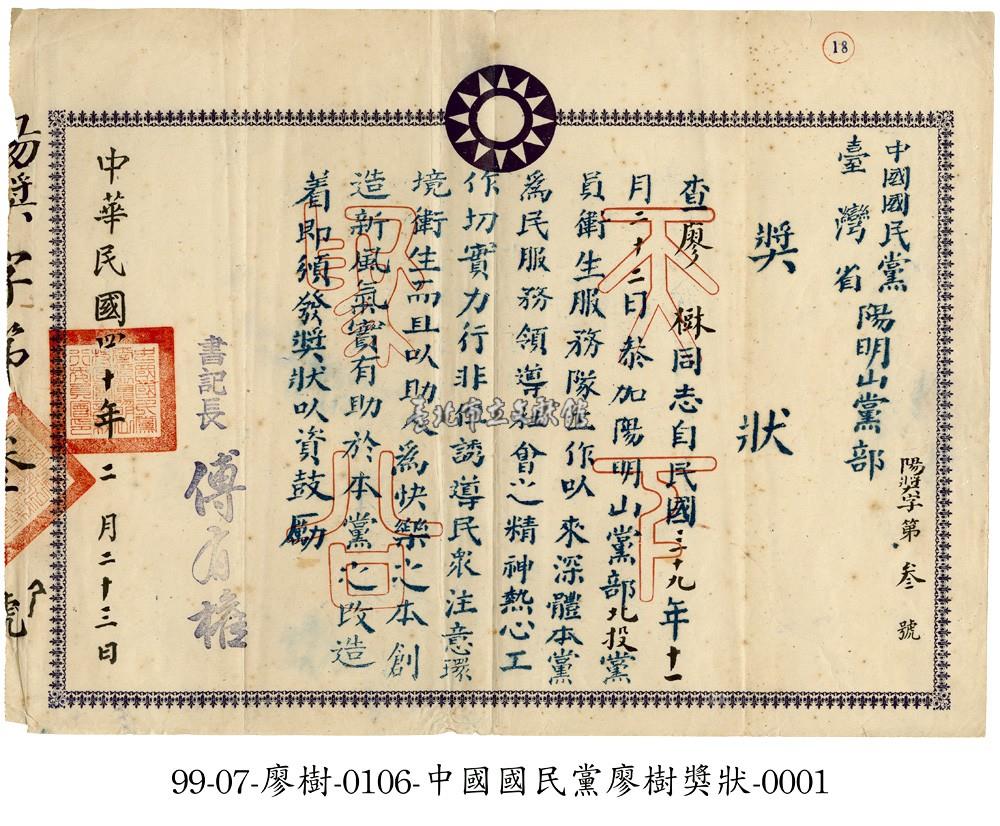 18
中國國民黨
臺灣省
陽明山黨部
陽獎字第叁號
獎狀
查廖樹同志自民國三十九年十一
月二十二日叅加陽明山黨部北投黨
員衛生服務隊工作以來深體本黨
為民服務領導社會之精神熱心工
作切實力行非但誘導民衆注意環
境衛生而且以助人為快樂之本創
造新風氣實有助於本黨之改造
着即頒發獎狀以資鼓勵
天下為公
書記長 傅有權
中華民國四十年二月二十三日
陽獎字第 號
臺北市立文獻館
99-07-廖樹-0106-中國國民黨廖樹獎狀-0001